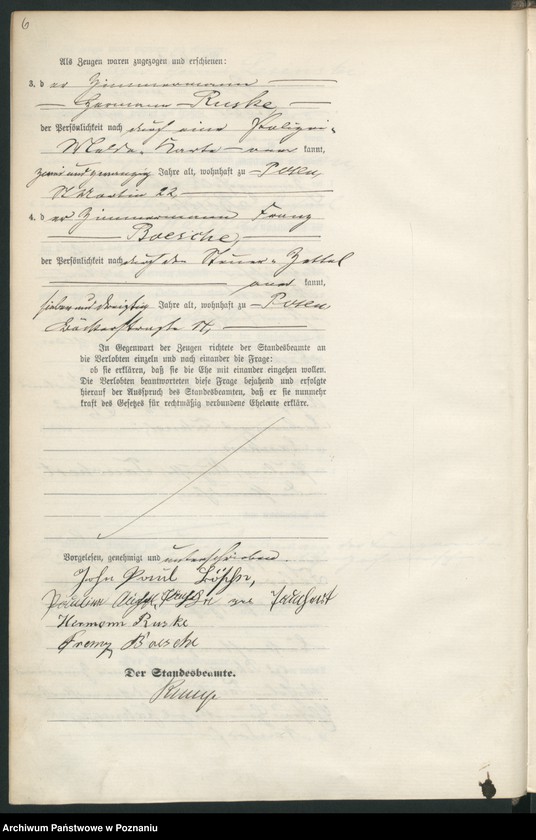 6
Als Zeugen waren zugezogen und erschienen:
3. der Zimmermann
Hermann Ruske
der Persönlichkeit nach durch eine Polizei-
Melde-Karte aner kannt,
zwei und zwanzig Jahre alt, wohnhaft zu Posen
St Martin 22,
4. der Zimmermann Franz
Boesche,
der Persönlichkeit nach durch den Steuer-Zettel
aner kannt,
sieben und dreißig Jahre alt, wohnhaft zu Posen
Bäckerstraße
In Gegenwart der Zeugen richtete der Standesbeamte an
die Verlobten einzeln und nach einander die Frage:
ob sie erklären, daß sie die Ehe mit einander eingehen wollen.
Die Verlobten beantworteten diese Frage bejahend und erfolgte
hierauf der Ausspruch des Standesbeamten, daß er sie nunmehr
kraft des Gesetzes für rechtmäßig verbundene Eheleute erkläre.
Vorgelesen, genehmigt und unterschrieben.
John Paul
Hermann Ruske
Franz Boesche
Der Standesbeamte.
Archiwum Państwowe w Poznaniu